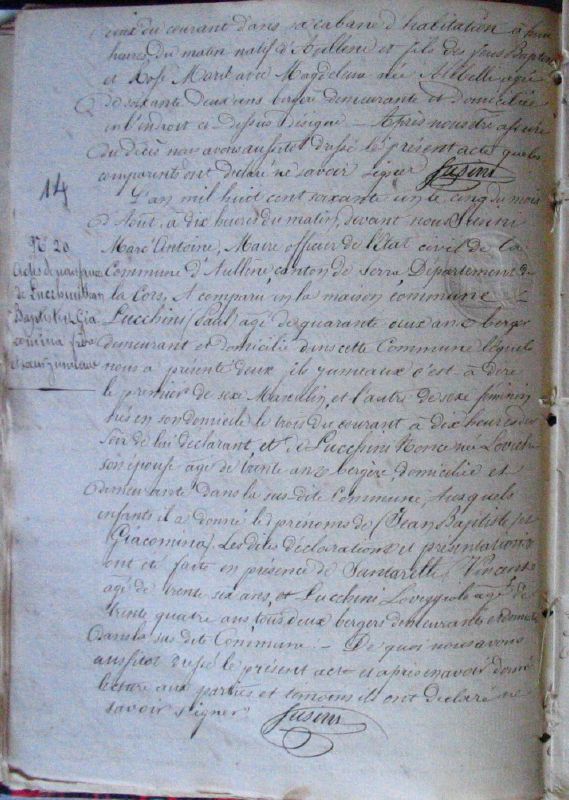 deux du courant dans sa cabane d'habitation à
heures du matin natif d'Aullène et fils des feus
et Magdeleine née agée
de soixante deux ans bergère demeurante et domiciliée
en l'endroit ci-dessus désigné. — Après nous être assuré
du décès nous avons aussitot dressé le présent acte que les
comparants ont declaré ne savoir signer Susini
14
L'an mil huit cent soixante un le cinq du mois
d'Août, à dix heures du matin, devant nous Susini
Marc'Antoine, Maire officier de l'Etat civil de la
Commune d'Aullène, canton de Serra Département de
la Corse, A comparu en la maison commune
Lucchini (Paul) agé de quarante deux ans berger
demeurant et domicilié dans cette Commune lequel
nous a présenté deux jumeaux c'est à dire
le premier de sexe Masculin, et l'autre de sexe féminin
nés en son domicile le trois du courant à dix heures du
soir de lui déclarant, et de Lucchini née
son épouse agée de trente ans bergère, domiciliée et
demeurante dans la sus-dite Commune, auxquels
enfants il a donné les prenoms de (Jean Baptiste et
Giacomina). Les dites déclarations et présentations
ont été faite en présence de Santarelli (Vincent)
agé de trente six ans, et Lucchini agé de
trente quatre ans tous deux bergers demeurant et
dans la sus dite Commune. — De quoi nous avons
aussitot dressé le présent acte et après en avoir donné
lecture aux parties et temoins ils ont déclaré ne
savoir signer Susini
N° 20
Actes de naissance
de Lucchini Jean
Baptiste et Gia
comina
et sœur jumeaux